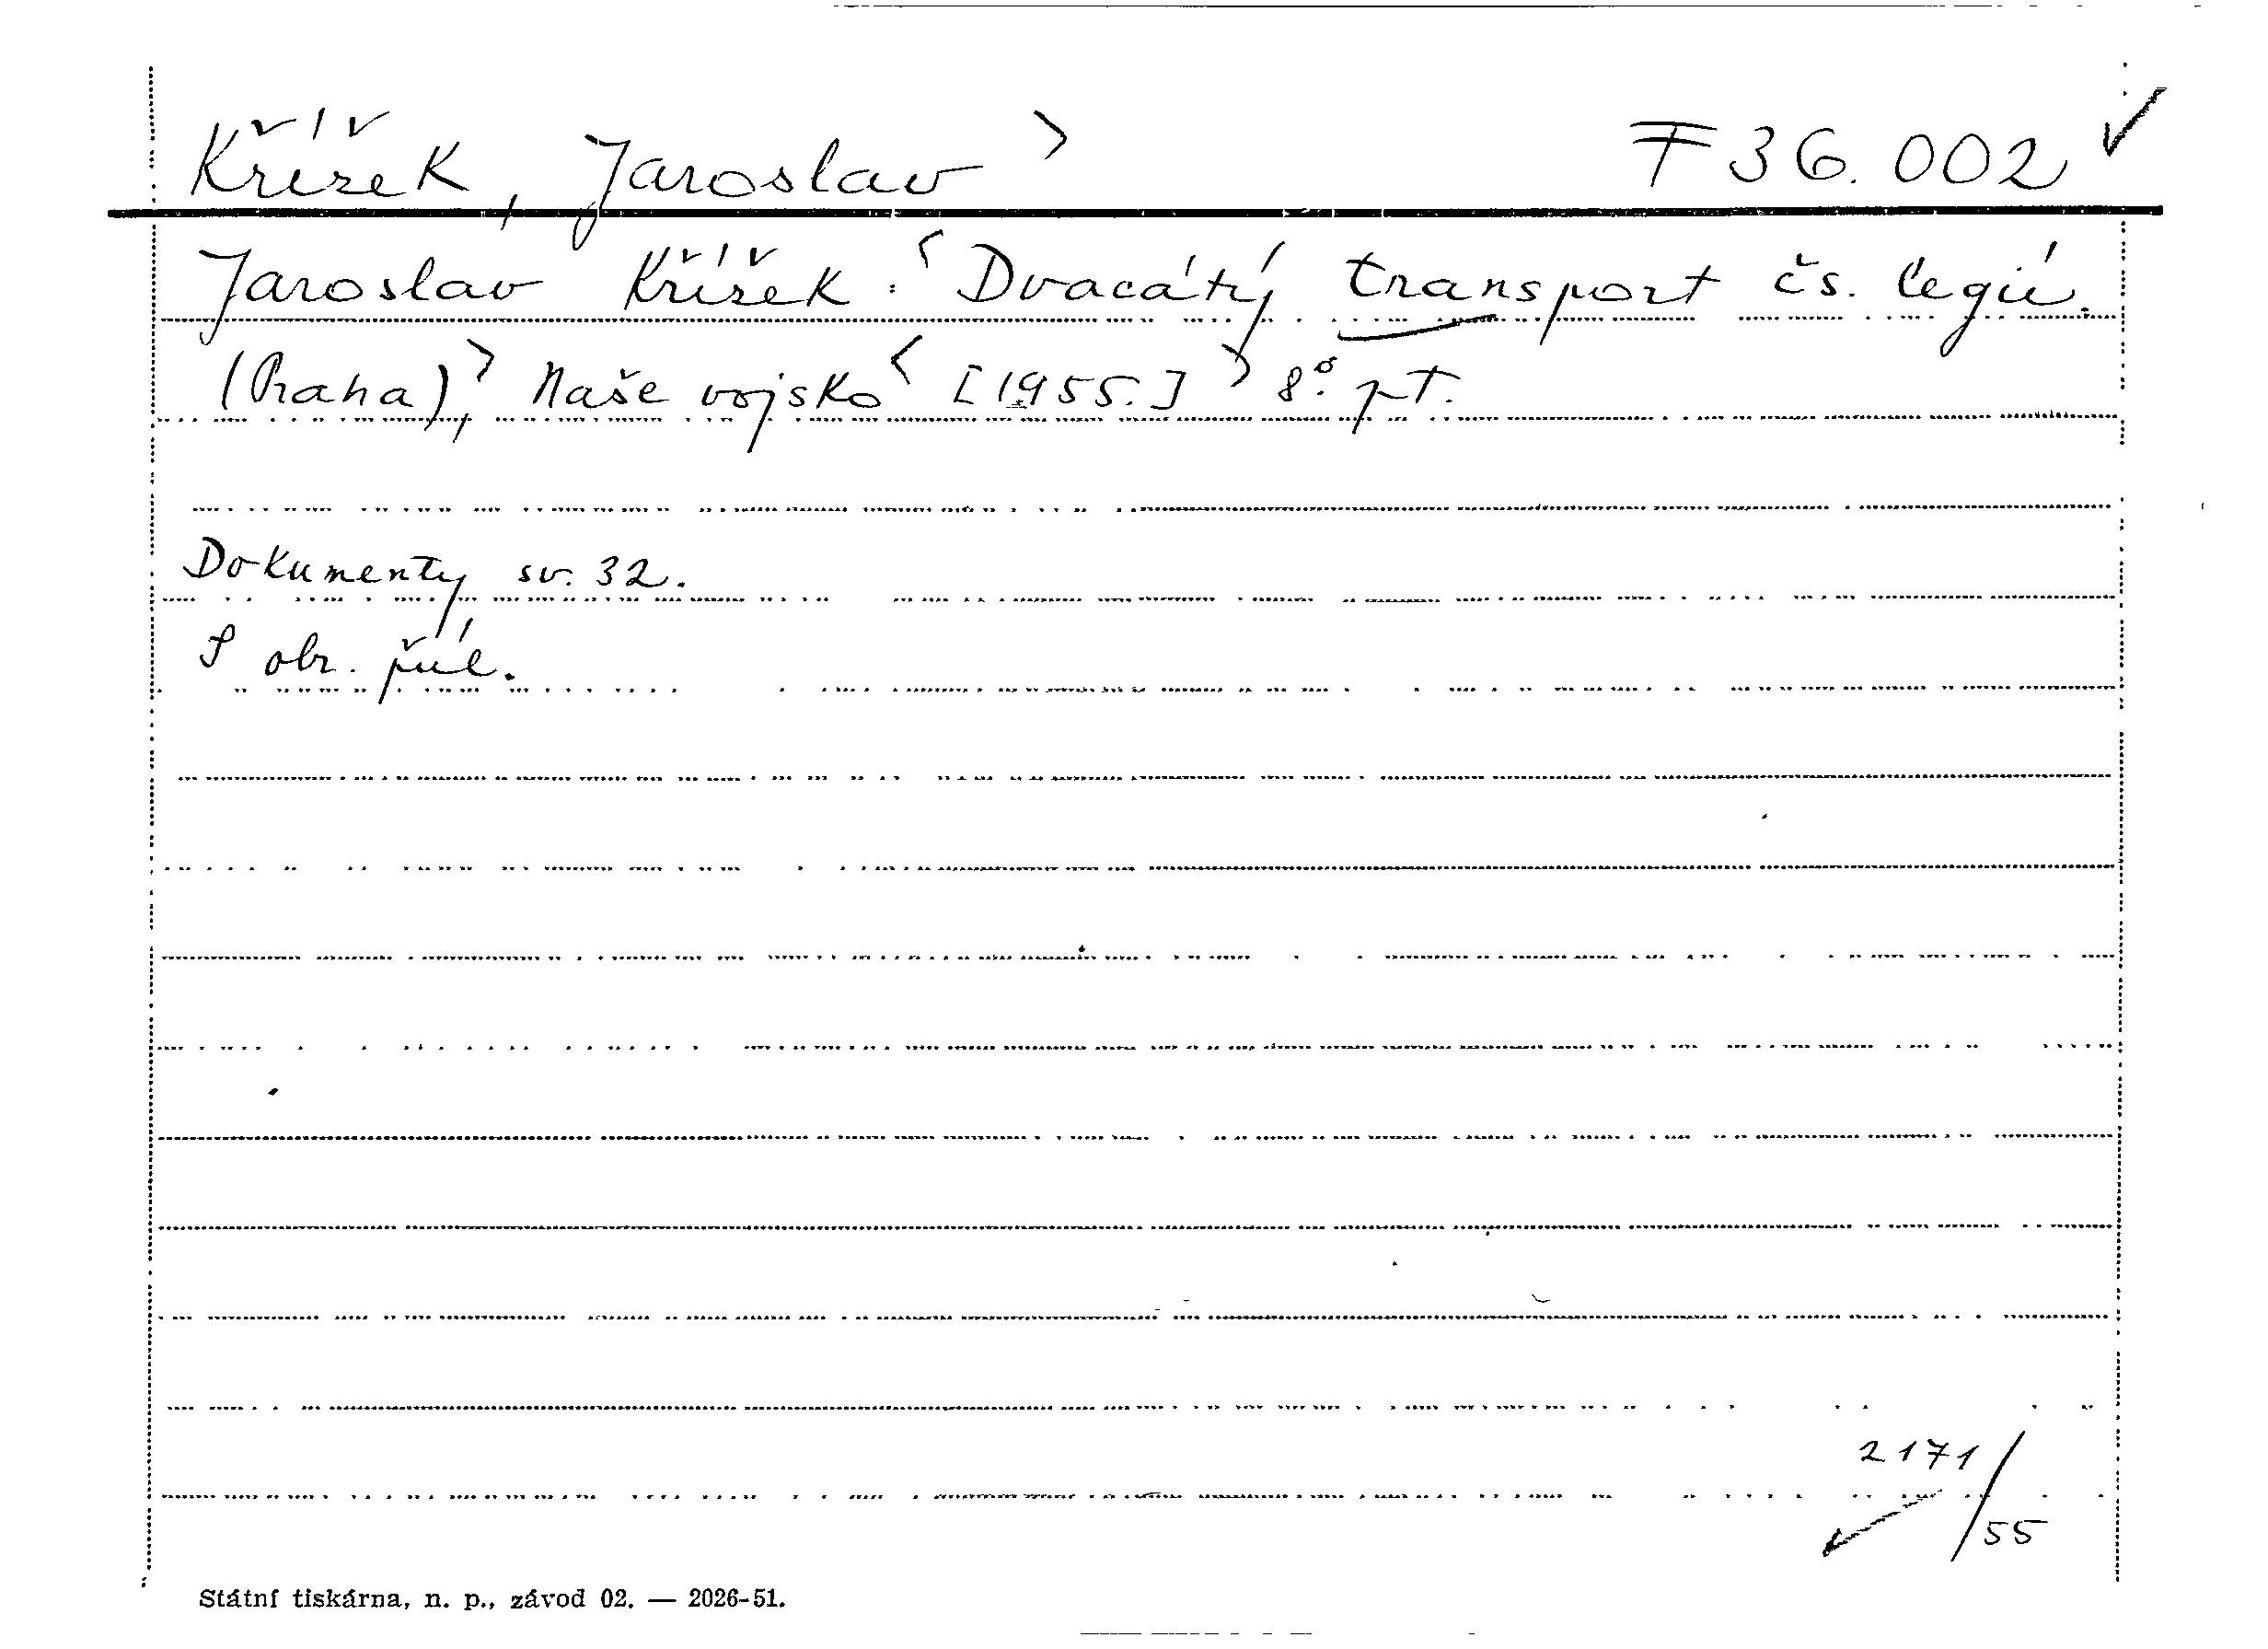 Křížek, Jaroslav > F 36.002 ✓
Jaroslav Křížek: < Dvacátý transport čs. legií.
(Praha), > Naše vojsko < [1955.] > 8°. pt.
Dokumenty sv. 32.
S obr. příl.
2171/55
Státní tiskárna, n. p., závod 02. — 2026-51.